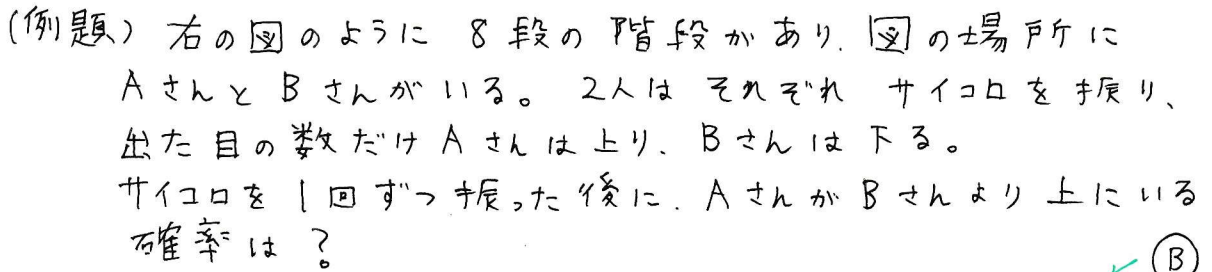 (例題) 右の図のように 8段の階段があり、図の場所に
AさんとBさんがいる。 2人は それぞれ サイコロを振り、
出た目の数だけAさんは上り、Bさんは下る。
サイコロを1回ずつ振った後に、AさんがBさんより上にいる
確率は?
B